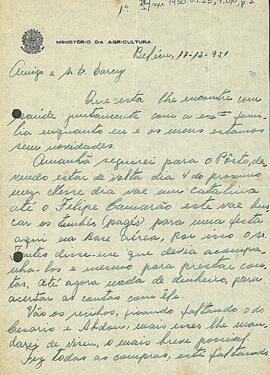 1º
MINISTÉRIO DA AGRICULTURA
Belém, 17-12-951
Amigo e Sr. Dr. Darcy
Que esta lhe encontre com
saúde juntamente com a exma fami-
lia enquanto eu e os meus estamos
sem novidades.
Amanhã seguirei para o Pôrto, de-
vendo estar de volta dia 4 do proximo
mez. Nesse dia vae um catalina
até o Filipe Camarão este vae bus-
car os tembés (pagés) para uma festa
aqui na Base Aérea, por isso o
disse-me que devia acompa-
nha-los e mesmo para prestar con-
tas, até agora nada de dinheiro, para
acertar as contas com êle.
Vão os recibos, ficando faltando o do
Cesario e Abdon, mais isses lhe man-
darei de Viseu, o mais breve possivel.
Fiz todas as compras, está faltando